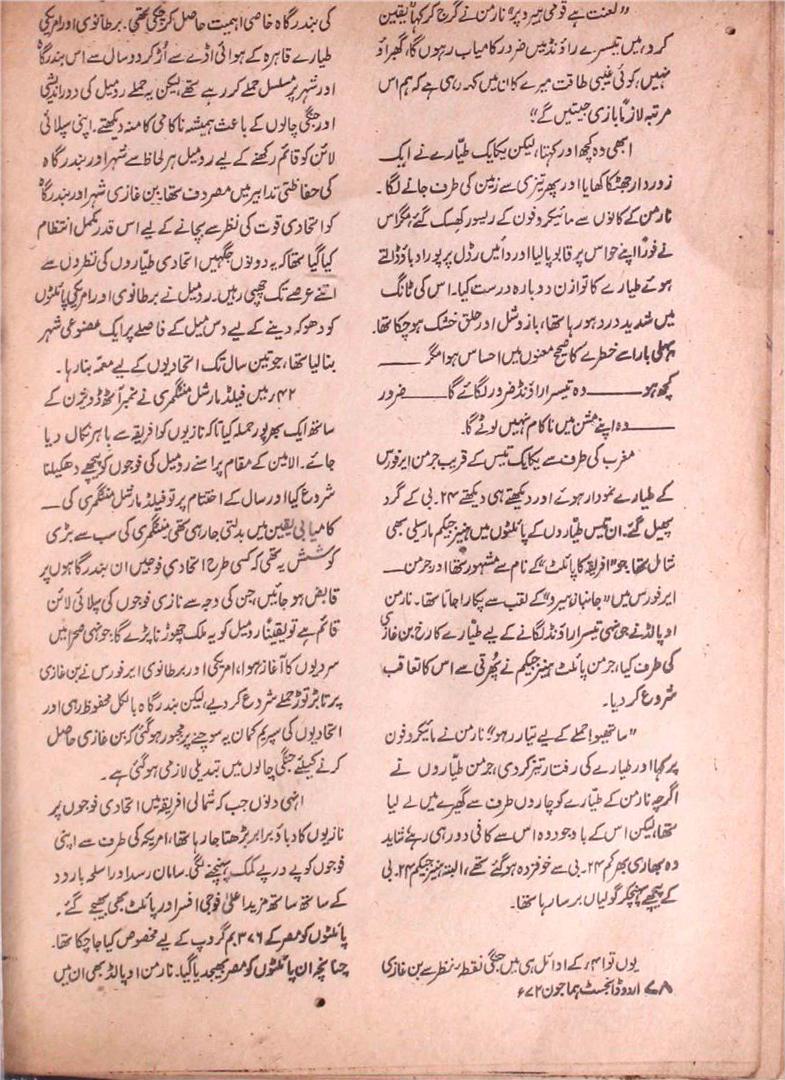 "لعنت ہے قومی ہیرو پر" نارمن نے گرج کر کہا "یقین
کرو، میں تیسرے راؤنڈ میں ضرور کامیاب رہوں گا، گھبراؤ
نہیں، کوئی غیبی طاقت میرے کان میں کہہ رہی ہے کہ ہم اس
مرتبہ لازماً بازی جیتیں گے"
ابھی وہ کچھ اور کہتا، لیکن یکایک طیّارے نے ایک
زوردار جھٹکا کھایا اور پھر تیزی سے زمین کی طرف جانے لگا۔
نارمن کے کانوں سے مائیکروفون کے ریسور کھسک گئے مگر اس
نے فوراً اپنے حواس پر قابو پالیا اور دائیں رڈل پر پورا دباؤ ڈالتے
ہوئے طیارے کا توازن دوبارہ درست کیا۔ اس کی ٹانگ
میں شدید درد ہو رہا تھا، بازو شل اور حلق خشک ہو چکا تھا۔
پہلی بار اسے خطرے کا صحیح معنوں میں احساس ہوا مگر ——
کچھ ہو —— وہ تیسرا راؤنڈ ضرور لگائے گا —— ضرور
—— وہ اپنے مشن میں ناکام نہیں لوٹے گا۔
مغرب کی طرف سے یکایک تیس کے قریب جرمن ایرفورس
کے طیارے نمودار ہوئے اور دیکھتے ہی دیکھتے ۲۴۔بی کے گرد
پھیل گئے۔ ان تیس طیاروں کے پائلٹوں میں ہینیز جیکم مارسلی بھی
شامل تھا، جو "افریقہ کا پائلٹ" کے نام سے مشہور تھا اور جرمن —
ایرفورس میں "جانباز ہیرو" کے لقب سے پکارا جاتا تھا۔ نارمن
اوپالڈ نے جونہی تیسرا راؤنڈ لگانے کے لیے طیارے کا رخ بن غازی
کی طرف کیا، جرمن پائلٹ ہینیز جیکم نے پھرتی سے اس کا تعاقب
شروع کر دیا۔
"ساتھیو! حملے کے لیے تیار رہو" نارمن نے مائیکروفون
پر کہا اور طیارے کی رفتار تیز کر دی، جرمن طیاروں نے
اگرچہ نارمن کے طیارے کو چاروں طرف سے گھیرے میں لے لیا
تھا، لیکن اس کے باوجود وہ اس سے کافی دور ہی رہے شاید
وہ بھاری بھرکم ۲۴۔بی سے خوفزدہ ہو گئے تھے، البتہ ہینیز جیکم ۲۴۔بی
کے پیچھے پہنچکر گولیاں برسا رہا تھا۔
یوں تو ۴۱ء کے اوائل ہی میں جنگی نقطۂ نظر سے بن غازی
۷۸ اردو ڈائجسٹ ہما جون ۷۲ء
کی بندرگاہ خاصی اہمیت حاصل کر چکی تھی۔ برطانوی اور امریکی
طیارے قاہرہ کے ہوائی اڈے سے اڑ کر دو سال سے اس بندرگاہ
اور شہر پر مسلسل حملے کر رہے تھے لیکن یہ حملے رومیل کی دور اندیشی
اور جنگی چالوں کے باعث ہمیشہ ناکامی کا منہ دیکھتے۔ اپنی سپلائی
لائن کو قائم رکھنے کے لیے رومیل ہر لحاظ سے شہر اور بندرگاہ
کی حفاظتی تدابیر میں مصروف تھا۔ بن غازی شہر اور بندرگاہ
کو اتحادی قوت کی نظر سے بچانے کے لیے اس قدر مکمل انتظام
کیا گیا تھا کہ یہ دونوں جگہیں اتحادی طیاروں کی نظروں سے
اتنے عرصے تک چھپی رہیں۔ رومیل نے برطانوی اور امریکی پائلٹوں
کو دھوکہ دینے کے لیے دس میل کے فاصلے پر ایک مصنوعی شہر
بنا لیا تھا، جو تین سال تک اتحادیوں کے لیے معمّہ بنا رہا۔
۴۲ء میں فیلڈ مارشل منٹگمری نے نمبر آٹھ ڈویژن کے
ساتھ ایک بھرپور حملہ کیا تاکہ نازیوں کو افریقہ سے باہر نکال دیا
جائے۔ الامین کے مقام پر اس نے رومیل کی فوجوں کو پیچھے دھکیلنا
شروع کیا اور سال کے اختتام پر تو فیلڈ مارشل منٹگمری کی —
کامیابی یقین میں بدلتی جا رہی تھی منٹگمری کی سب سے بڑی
کوشش یہ تھی کہ کسی طرح اتحادی فوجیں ان بندرگاہوں پر
قابض ہو جائیں، جن کی وجہ سے نازی فوجوں کی سپلائی لائن
قائم ہے تو یقیناً رومیل کو یہ ملک چھوڑنا پڑے گا؛ جونہی صحرا میں
سردیوں کا آغاز ہوا، امریکی اور برطانوی ایرفورس نے بن غازی
پر تابڑ توڑ حملے شروع کر دیے، لیکن بندرگاہ بالکل محفوظ رہی اور
اتحادیوں کی سپریم کمان یہ سوچنے پر مجبور ہو گئی کہ بن غازی حاصل
کرنے کیلئے جنگی چالوں میں تبدیلی لازمی ہو گئی ہے۔
انہی دنوں جب کہ شمالی افریقہ میں اتحادی فوجوں پر
نازیوں کا دباؤ برابر بڑھتا جا رہا تھا، امریکہ کی طرف سے اپنی
فوجوں کو پے در پے کمک پہنچنے لگی۔ سامان رسد اور اسلحہ بارود
کے ساتھ ساتھ مزید اعلیٰ فوجی افسر اور پائلٹ بھی بھیجے گئے۔
پائلٹوں کو مصر کے ۳۷۶ بم گروپ کے لیے مخصوص کیا جا چکا تھا۔
چنانچہ ان پائلٹوں کو مصر بھیج دیا گیا۔ نارمن اوپالڈ بھی ان میں